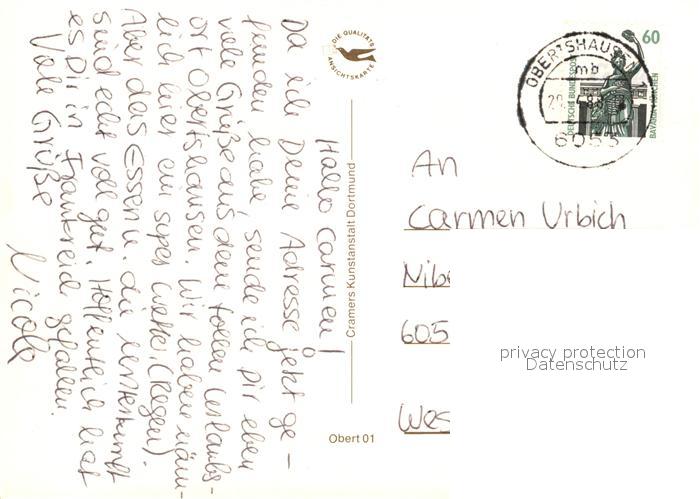 Hallo Carmen!
Da ich Deine Adresse jetzt ge-
funden habe, sende ich Dir eben
viele Grüße aus dem tollen Urlaubs-
ort Obertshausen. Wir haben näm-
lich hier ein super Wetter (Regen).
Aber das Essen u. die Unterkunft
sind echt voll gut. Hoffentlich hat
es Dir in Frankreich gefallen.
Viele Grüße
Nicole
DIE QUALITÄTS
ANSICHTSKARTE
Cramers Kunstanstalt Dortmund
Obert 01
60
DEUTSCHE BUNDESPOST
BAVARIA MÜNCHEN
OBERTSHAUSEN 1
mb
6053
An
Carmen Urbich
Nibe
605
Wes
privacy protection
Datenschutz